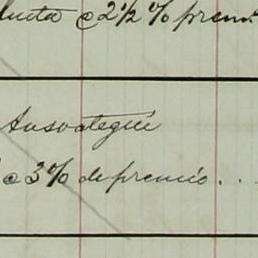 @ 2½ % prem.
Ansoategui
@ 3% de premio . . .